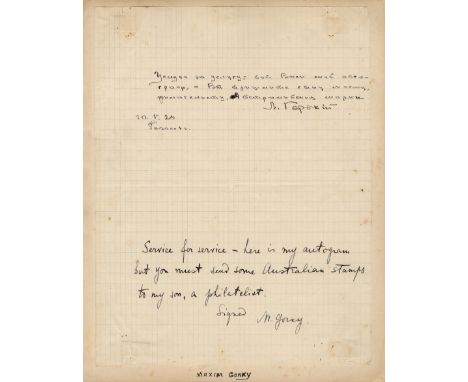 Услуга за услугу: вот Вам мой авто-
граф, а Вы пришлите сыну моему,
филателисту, Австралийских марок
М. Горький
20. V. 28
Service for service – here is my autogram
but you must send some Australian stamps
to my son, a philatelist.
Signed M. Gorky.
MAXIM GORKY